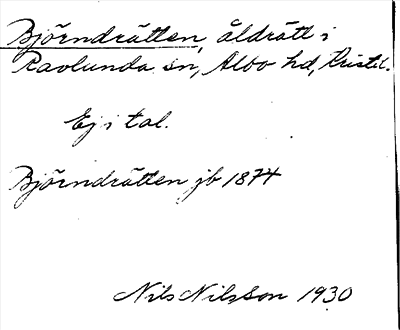 Björndrätten, åldrätt i
Ravlunda sn, Albo hd, Kristst.
Ej i tal.
Björndrätten jb 1874
Nils Nilsson 1930